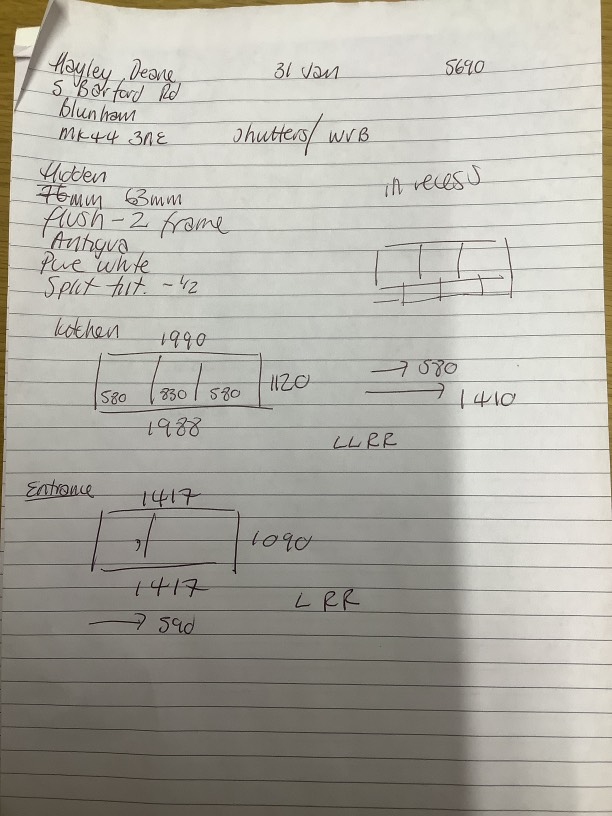 Hayley Deane 31 Jan 5690
5 Barford Rd
blunham
MK44 3NE shutters/ WVB
Hidden
76mm 63mm in recess
flush - 2 frame
Antigua
Pure white
Split tilt. - 1/2
kitchen
1990
580 830 580 1120 → 580
→ 1410
1988
LLRR
Entrance
1417
1090
1417
LRR
→ 590